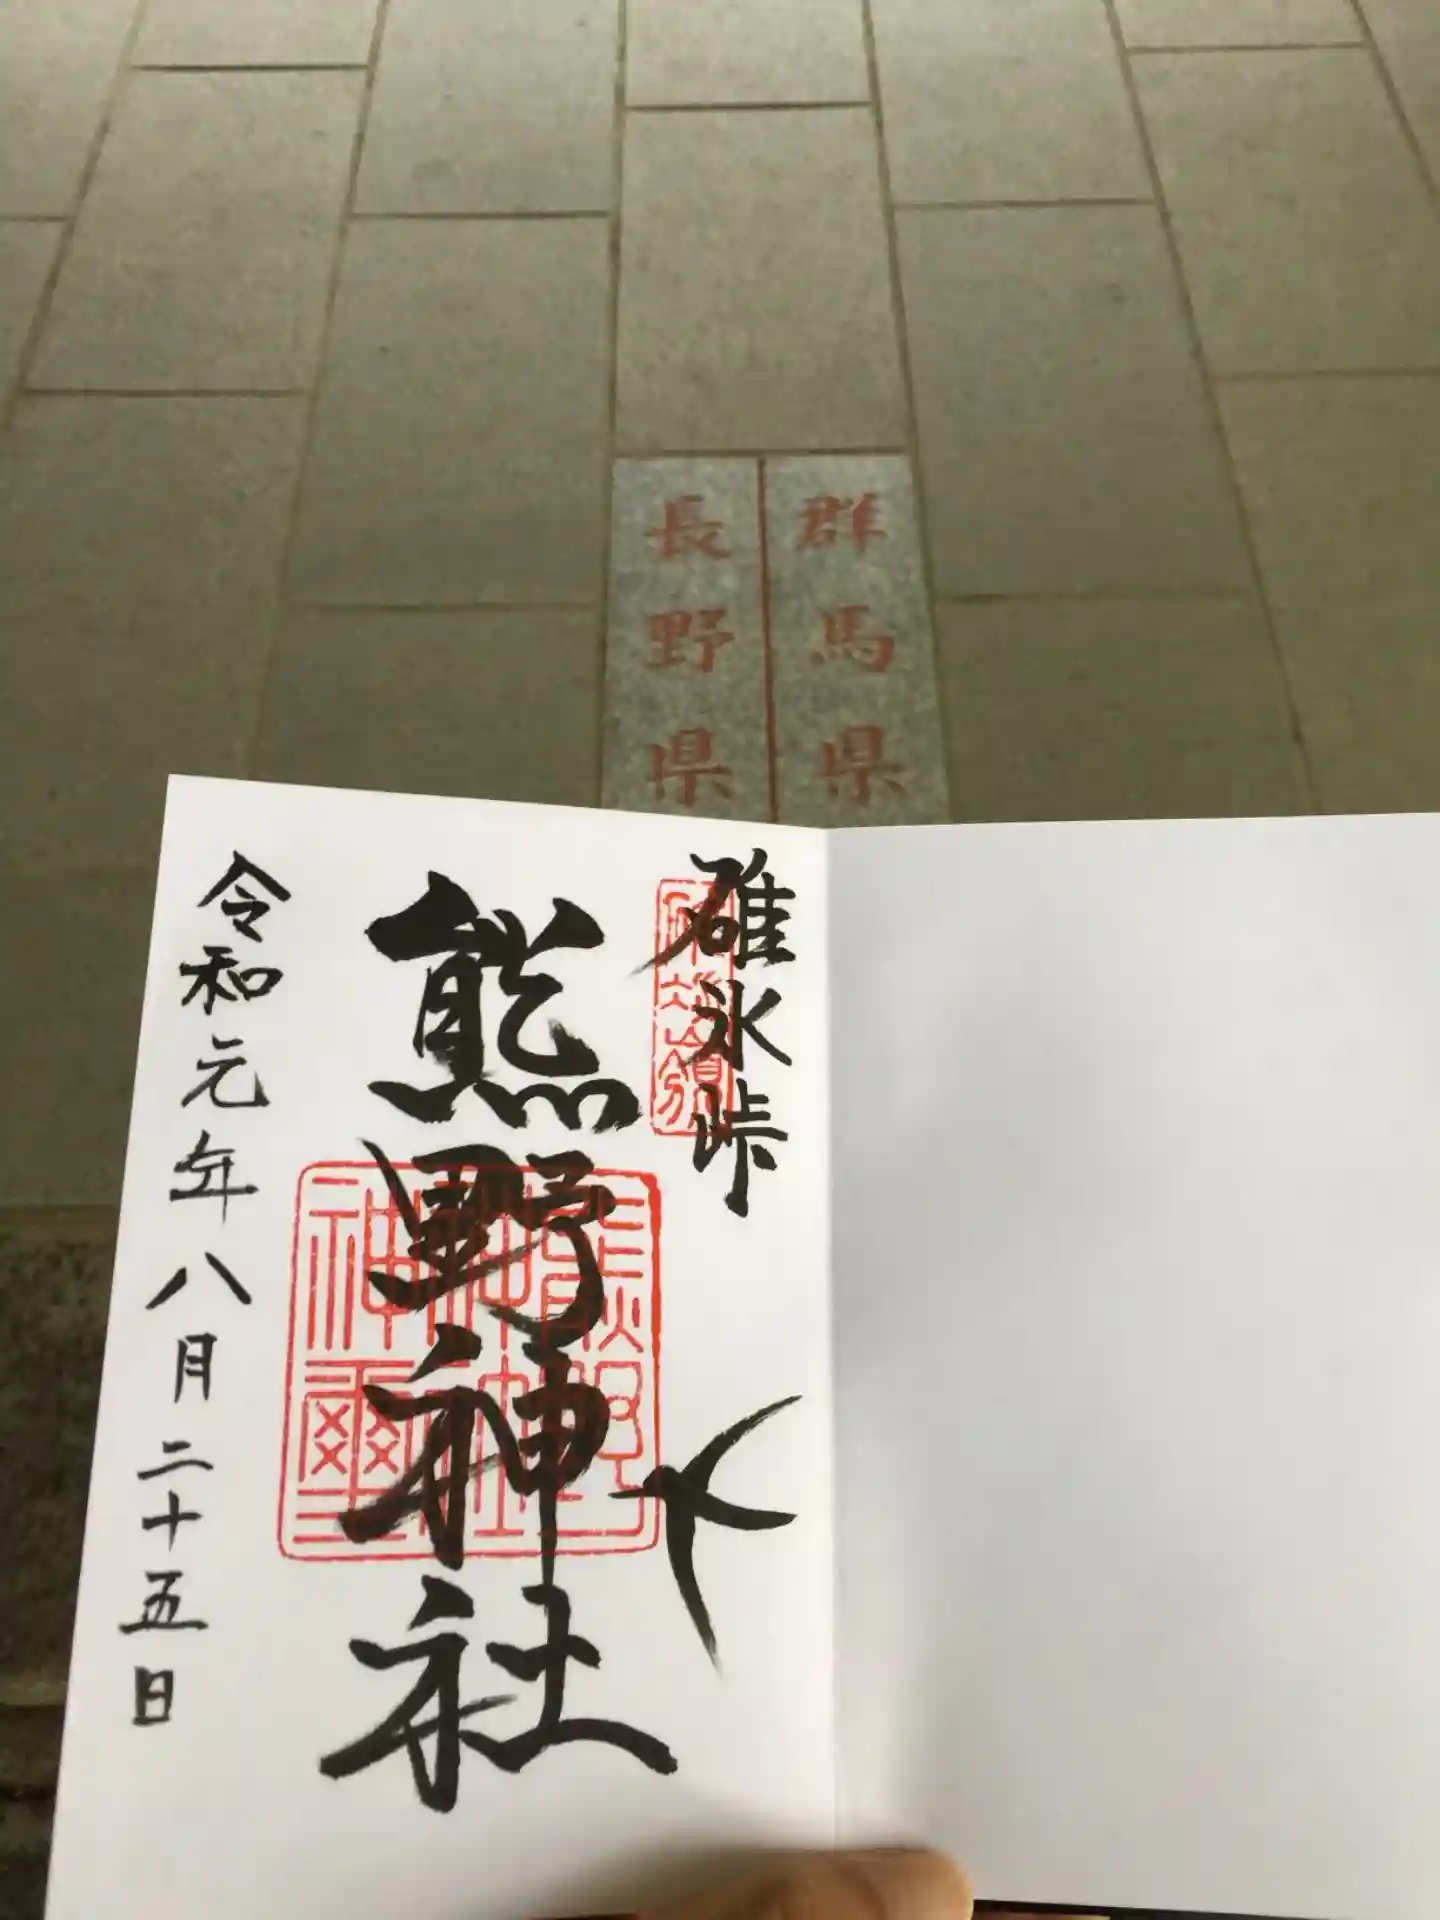 群馬県
長野県
碓氷峠
熊野神社
令和元年八月二十五日